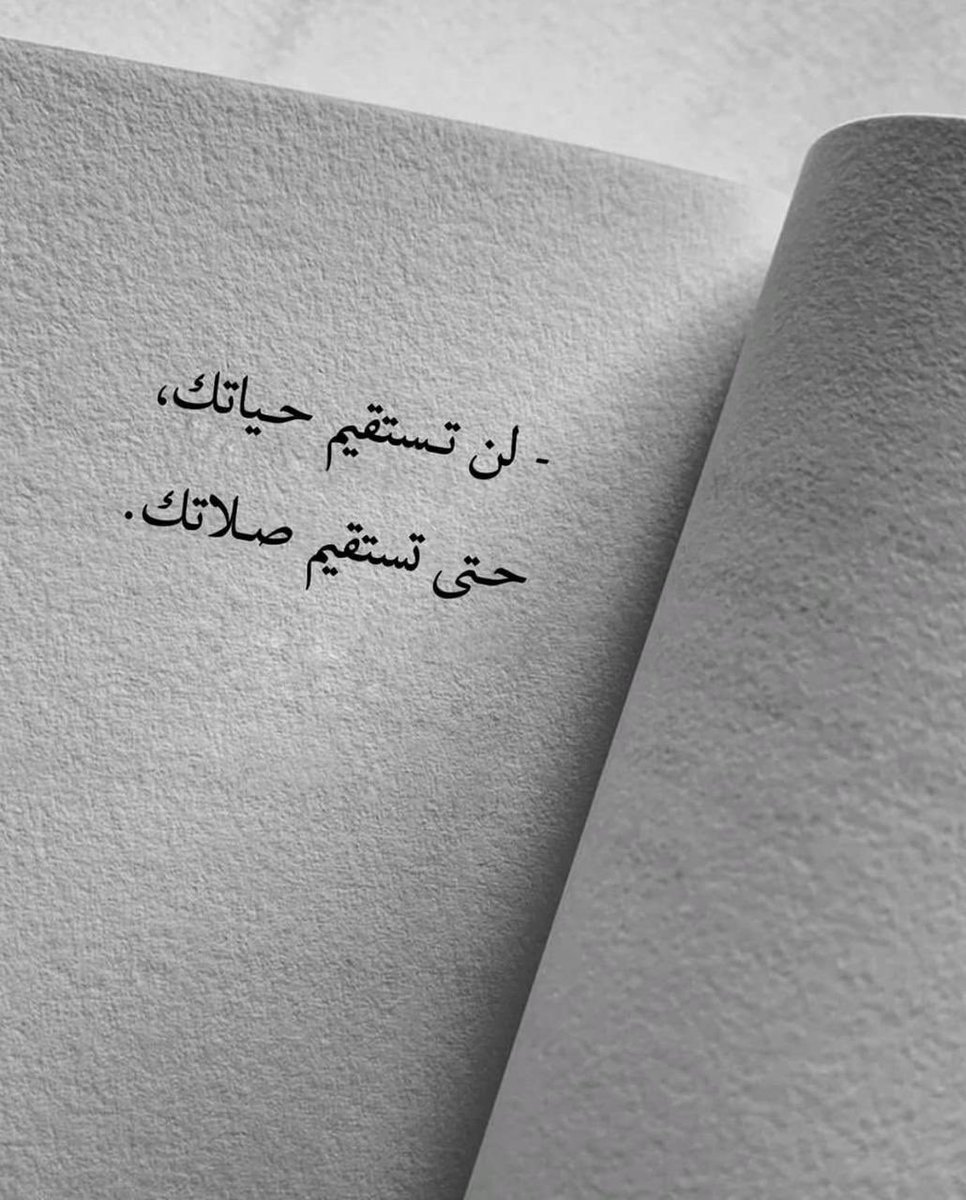 - لن تستقيم حياتك،
حتى تستقيم صلاتك.